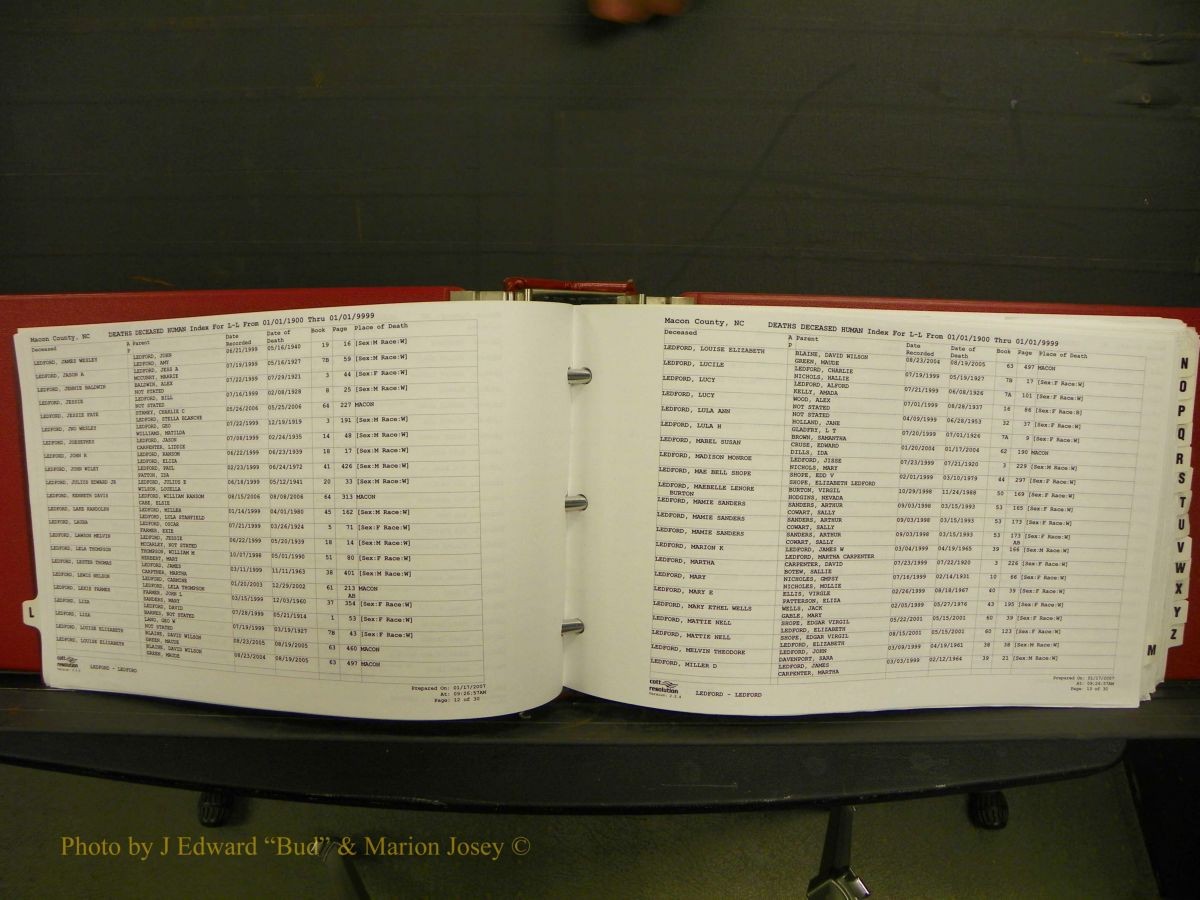 Macon County, NC DEATHS DECEASED HUMAN Index For L-L From 01/01/1900 Thru 01/01/9999
Deceased A Parent Date Recorded Date of Death Book Page Place of Death
P
LEDFORD, JAMES WESLEY LEDFORD, JOHN 06/21/1999 05/16/1940 19 16 [Sex:M Race:W]
LEDFORD, AMY
LEDFORD, JASON A LEDFORD, JESS A 07/19/1999 05/16/1927 7B 59 [Sex:M Race:W]
MCCURRY, MARRIE
LEDFORD, JENNIE BALDWIN BALDWIN, ALEX 07/22/1999 07/29/1921 3 44 [Sex:F Race:W]
NOT STATED
LEDFORD, JESSIE LEDFORD, BILL 07/16/1999 02/08/1928 8 25 [Sex:M Race:W]
NOT STATED
LEDFORD, JESSIE FAYE STAMEY, CHARLIE C 05/26/2006 05/25/2006 64 227 MACON
LEDFORD, STELLA BLANCHE
LEDFORD, JNO WESLEY LEDFORD, GEO 07/22/1999 12/19/1919 3 191 [Sex:M Race:W]
WILLIAMS, MATILDA
LEDFORD, JOESEPHES LEDFORD, JASON 07/08/1999 02/24/1935 14 48 [Sex:M Race:W]
CARPENTER, LIDDIE
LEDFORD, JOHN R LEDFORD, RANSOM 06/22/1999 06/23/1939 18 17 [Sex:M Race:W]
LEDFORD, ELIZA
LEDFORD, JOHN WILEY LEDFORD, PAUL 02/23/1999 06/24/1972 41 426 [Sex:M Race:W]
PATTON, IDA
LEDFORD, JULIUS EDWARD JR LEDFORD, JULIUS E 06/18/1999 05/12/1941 20 33 [Sex:M Race:W]
WILSON, LOUELLA
LEDFORD, KENNETH DAVIS LEDFORD, WILLIAM RANSOM 08/15/2006 08/08/2006 64 313 MACON
CABE, ELSIE
LEDFORD, LAKE RANDOLPH LEDFORD, MILLER 01/14/1999 04/01/1980 45 162 [Sex:M Race:W]
LEDFORD, LULA STANFIELD
LEDFORD, LAURA LEDFORD, OSCAR 07/21/1999 03/26/1924 5 71 [Sex:F Race:W]
FARMER, EXIE
LEDFORD, LAWSON MELVIN LEDFORD, JESSIE 06/22/1999 05/20/1939 18 14 [Sex:M Race:W]
MCCARLEY, NOT STATED
LEDFORD, LELA THOMPSON THOMPSON, WILLIAM M 10/07/1998 05/01/1990 51 80 [Sex:F Race:W]
HERBERT, MARY
LEDFORD, LESTER THOMAS LEDFORD, JAMES 03/11/1999 11/11/1963 38 401 [Sex:M Race:W]
CARPTNER, MARTHA
LEDFORD, LEWIS NELSON LEDFORD, CARMINE 01/20/2003 12/29/2002 61 213 MACON
LEDFORD, LELA THOMPSON AB
LEDFORD, LEXIE FARMER FARMER, JOHN L 03/15/1999 12/03/1960 37 354 [Sex:F Race:W]
SANDERS, MARY
LEDFORD, LIZA LEDFORD, DAVID 07/28/1999 05/21/1914 1 53 [Sex:F Race:W]
BARNES, NOT STATED
LEDFORD, LIZA LANG, GEO W 07/19/1999 03/19/1927 7B 43 [Sex:F Race:W]
NOT STATED
LEDFORD, LOUISE ELIZABETH BLAINE, DAVIS WILSON 08/23/2005 08/19/2005 63 460 MACON
GREEN, MAUDE
LEDFORD, LOUISE ELIZABETH BLAINE, DAVIS WILSON 08/23/2004 08/19/2005 63 497 MACON
GREEN, MAUDE
cott resolution
LEDFORD - LEDFORD
Prepared On: 01/17/2007
At: 09:26:57AM
Page: 12 of 30
L
Macon County, NC DEATHS DECEASED HUMAN Index For L-L From 01/01/1900 Thru 01/01/9999
Deceased A Parent Date Recorded Date of Death Book Page Place of Death
P
LEDFORD, LOUISE ELIZABETH BLAINE, DAVID WILSON 08/23/2004 08/19/2005 63 497 MACON
GREEN, MAUDE
LEDFORD, LUCILE LEDFORD, CHARLIE 07/19/1999 05/19/1927 7B 17 [Sex:F Race:W]
NICHOLS, HALLIE
LEDFORD, LUCY LEDFORD, ALFORD 07/21/1999 06/08/1926 7A 101 [Sex:F Race:W]
KELLY, AMADA
LEDFORD, LUCY WOOD, ALEX 07/01/1999 08/28/1937 16 86 [Sex:F Race:W]
NOT STATED
LEDFORD, LULA ANN NOT STATED 04/09/1999 06/28/1953 32 37 [Sex:F Race:W]
HOLLAND, JANE
LEDFORD, LULA H GLADFRY, L T 07/20/1999 07/01/1926 7A 9 [Sex:F Race:W]
BROWN, SAMANTHA
LEDFORD, MABEL SUSAN CRUSE, EDWARD 01/20/2004 01/17/2004 62 190 MACON
DILLS, IDA
LEDFORD, MADISON MONROE LEDFORD, JISSE 07/23/1999 07/21/1920 3 229 [Sex:M Race:W]
NICHOLS, MARY
LEDFORD, MAE BELL SHOPE SHOPE, EDD V 02/01/1999 03/10/1979 44 297 [Sex:F Race:W]
SHOPE, ELIZABETH LEDFORD
LEDFORD, MAEBELLE LENORE BURTON, VIRGIL 10/29/1998 11/24/1988 50 169 [Sex:F Race:W]
BURTON HODGINS, NEVADA
LEDFORD, MAMIE SANDERS SANDERS, ARTHUR 09/03/1998 03/15/1993 53 165 [Sex:F Race:W]
COWART, SALLY
LEDFORD, MAMIE SANDERS SANDERS, ARTHUR 09/03/1998 03/15/1993 53 173 [Sex:F Race:W]
COWART, SALLY
LEDFORD, MAMIE SANDERS SANDERS, ARTHUR 09/03/1998 03/15/1993 53 173 [Sex:F Race:W]
COWART, SALLY AB
LEDFORD, MARION K LEDFORD, JAMES W 03/04/1999 04/19/1965 39 166 [Sex:M Race:W]
LEDFORD, MARTHA CARPENTER
LEDFORD, MARTHA CARPENTER, DAVID 07/23/1999 07/22/1920 3 226 [Sex:F Race:W]
BOTEW, SALLIE
LEDFORD, MARY NICHOLES, GMPSY 07/16/1999 02/14/1931 10 66 [Sex:F Race:W]
NICHOLES, MOLLIE
LEDFORD, MARY E ELLIS, VIRGLE 02/26/1999 08/18/1967 40 39 [Sex:F Race:W]
PATTERSON, ELIZA
LEDFORD, MARY ETHEL WELLS WELLS, JACK 02/05/1999 05/27/1976 43 195 [Sex:F Race:W]
GABLE, MARY
LEDFORD, MATTIE NELL SHOPE, EDGAR VIRGIL 05/22/2001 05/15/2001 60 39 [Sex:F Race:W]
LEDFORD, ELIZABETH
LEDFORD, MATTIE NELL SHOPE, EDGAR VIRGIL 08/15/2001 05/15/2001 60 123 [Sex:F Race:W]
LEDFORD, ELIZABETH
LEDFORD, MELVIN THEODORE LEDFORD, JOHN 03/09/1999 04/19/1961 38 38 [Sex:M Race:W]
DAVENPORT, SARA
LEDFORD, MILLER D LEDFORD, JAMES 03/03/1999 02/12/1964 39 21 [Sex:M Race:W]
CARPENTER, MARTHA
cott resolution
LEDFORD - LEDFORD
Prepared On: 01/17/2007
At: 09:26:57AM
Page: 13 of 30
N
O
P
Q
R
S
T
U
V
W
X
Y
Z
M
Photo by J Edward “Bud” & Marion Josey ©